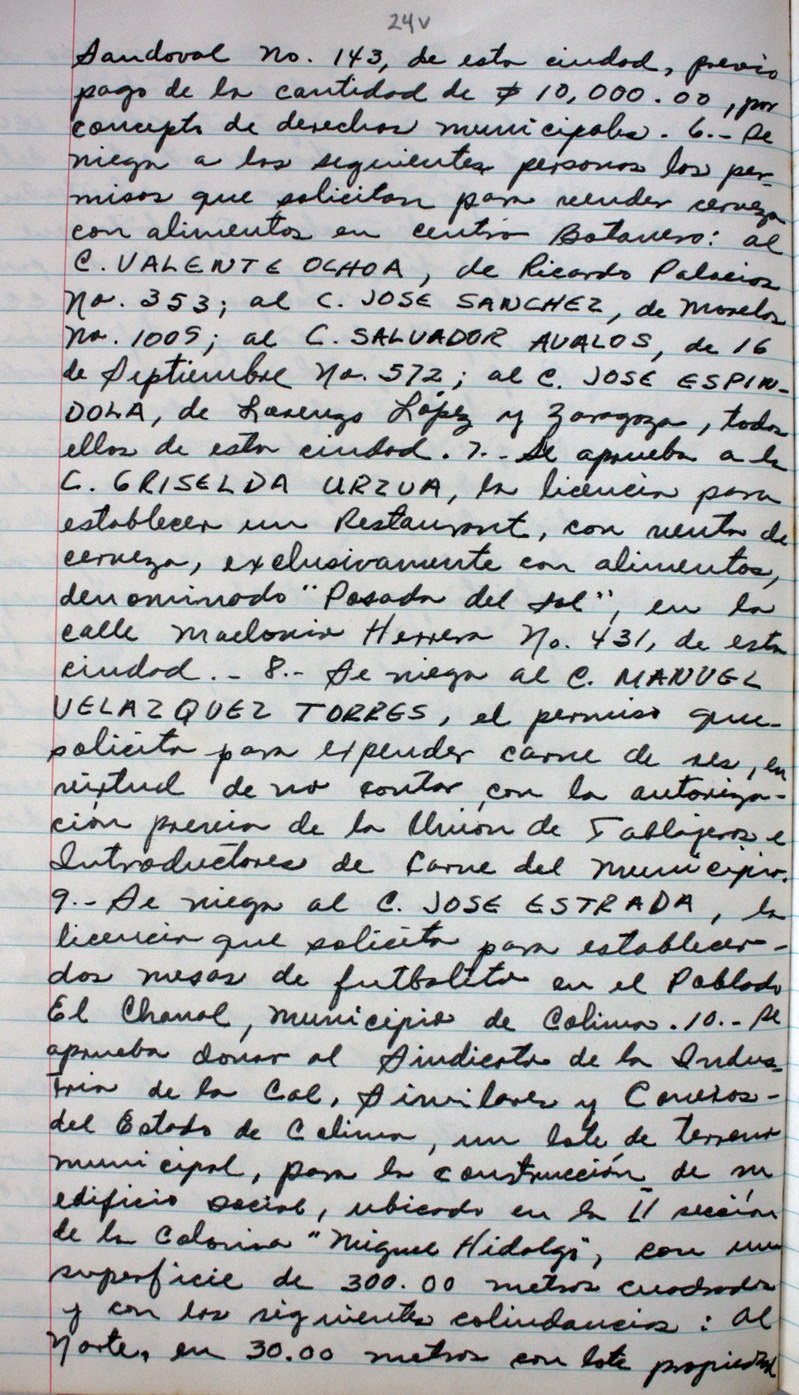 24v
Sandoval No. 143, de esta ciudad, previo
pago de la cantidad de $ 10,000.00, por
concepto de derechos municipales. 6.- Se
niega a las siguientes personas los per-
misos que solicitan para vender cerveza
con alimentos en centro Botanero: al
C. VALENTE OCHOA, de Ricardo Palacios
No. 353; al C. JOSE SANCHEZ, de Morelos
No. 1005; al C. SALVADOR AVALOS, de 16
de Septiembre No. 572; al C. JOSE ESPIN-
DOLA, de Lorenzo López y Zaragoza, todos
ellos de esta ciudad. 7.- Se aprueba a la
C. GRISELDA URZUA, la licencia para
establecer un Restaurant, con venta de
cerveza, exclusivamente con alimentos,
denominado "Posada del Sol", en la
calle Maclovio Herrera No. 431, de esta
ciudad.- 8.- Se niega al C. MANUEL
VELAZQUEZ TORRES, el permiso que-
solicita para expender carne de res, en
virtud de no contar con la autoriza-
ción previa de la Unión de Tablajeros e
Introductores de Carne del Municipio.
9.- Se niega al C. JOSE ESTRADA, la
licencia que solicita para establecer-
dos mesas de futbolito en el Poblado
El Chanal, municipio de Colima. 10.- Se
aprueba donar al Sindicato de la Indus-
tria de la Cal, Similares y Conexos-
del Estado de Colima, un lote de terreno
municipal, para la construcción de su
edificio social, ubicado en la II sección
de la Colonia "Miguel Hidalgo", con una
superficie de 300.00 metros cuadrados
y con las siguientes colindancias: Al
Norte, en 30.00 metros con lote propiedad